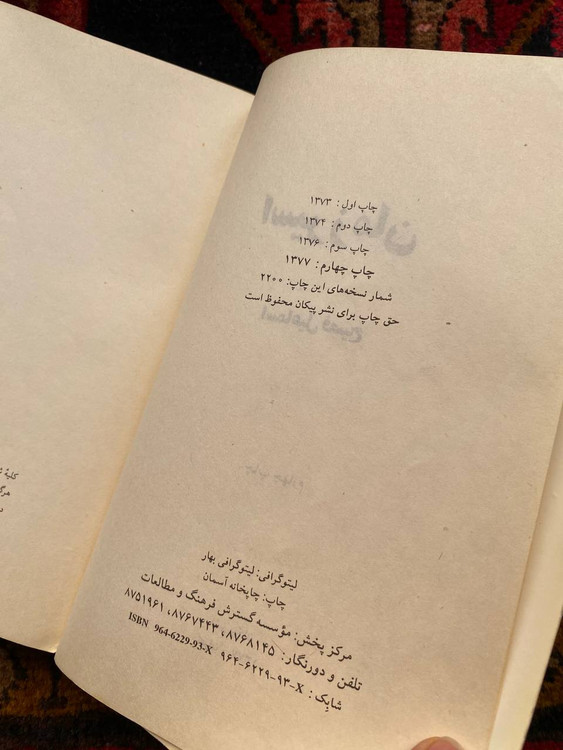 چاپ اول: ۱۳۷۳
چاپ دوم: ۱۳۷۴
چاپ سوم: ۱۳۷۶
چاپ چهارم: ۱۳۷۷
شمار نسخه‌های این چاپ: ۲۲۰۰
حق چاپ برای نشر پیکان محفوظ است
لیتوگرافی: لیتوگرافی بهار
چاپ: چاپخانه آسمان
مرکز پخش: مؤسسه گسترش فرهنگ و مطالعات
تلفن و دورنگار: ۸۷۶۸۱۴۵، ۸۷۶۷۴۴۳، ۸۷۵۱۹۶۱
شابک: X-۹۳-۶۲۲۹-۹۶۴ ISBN 964-6229-93-X
کلیهٔ